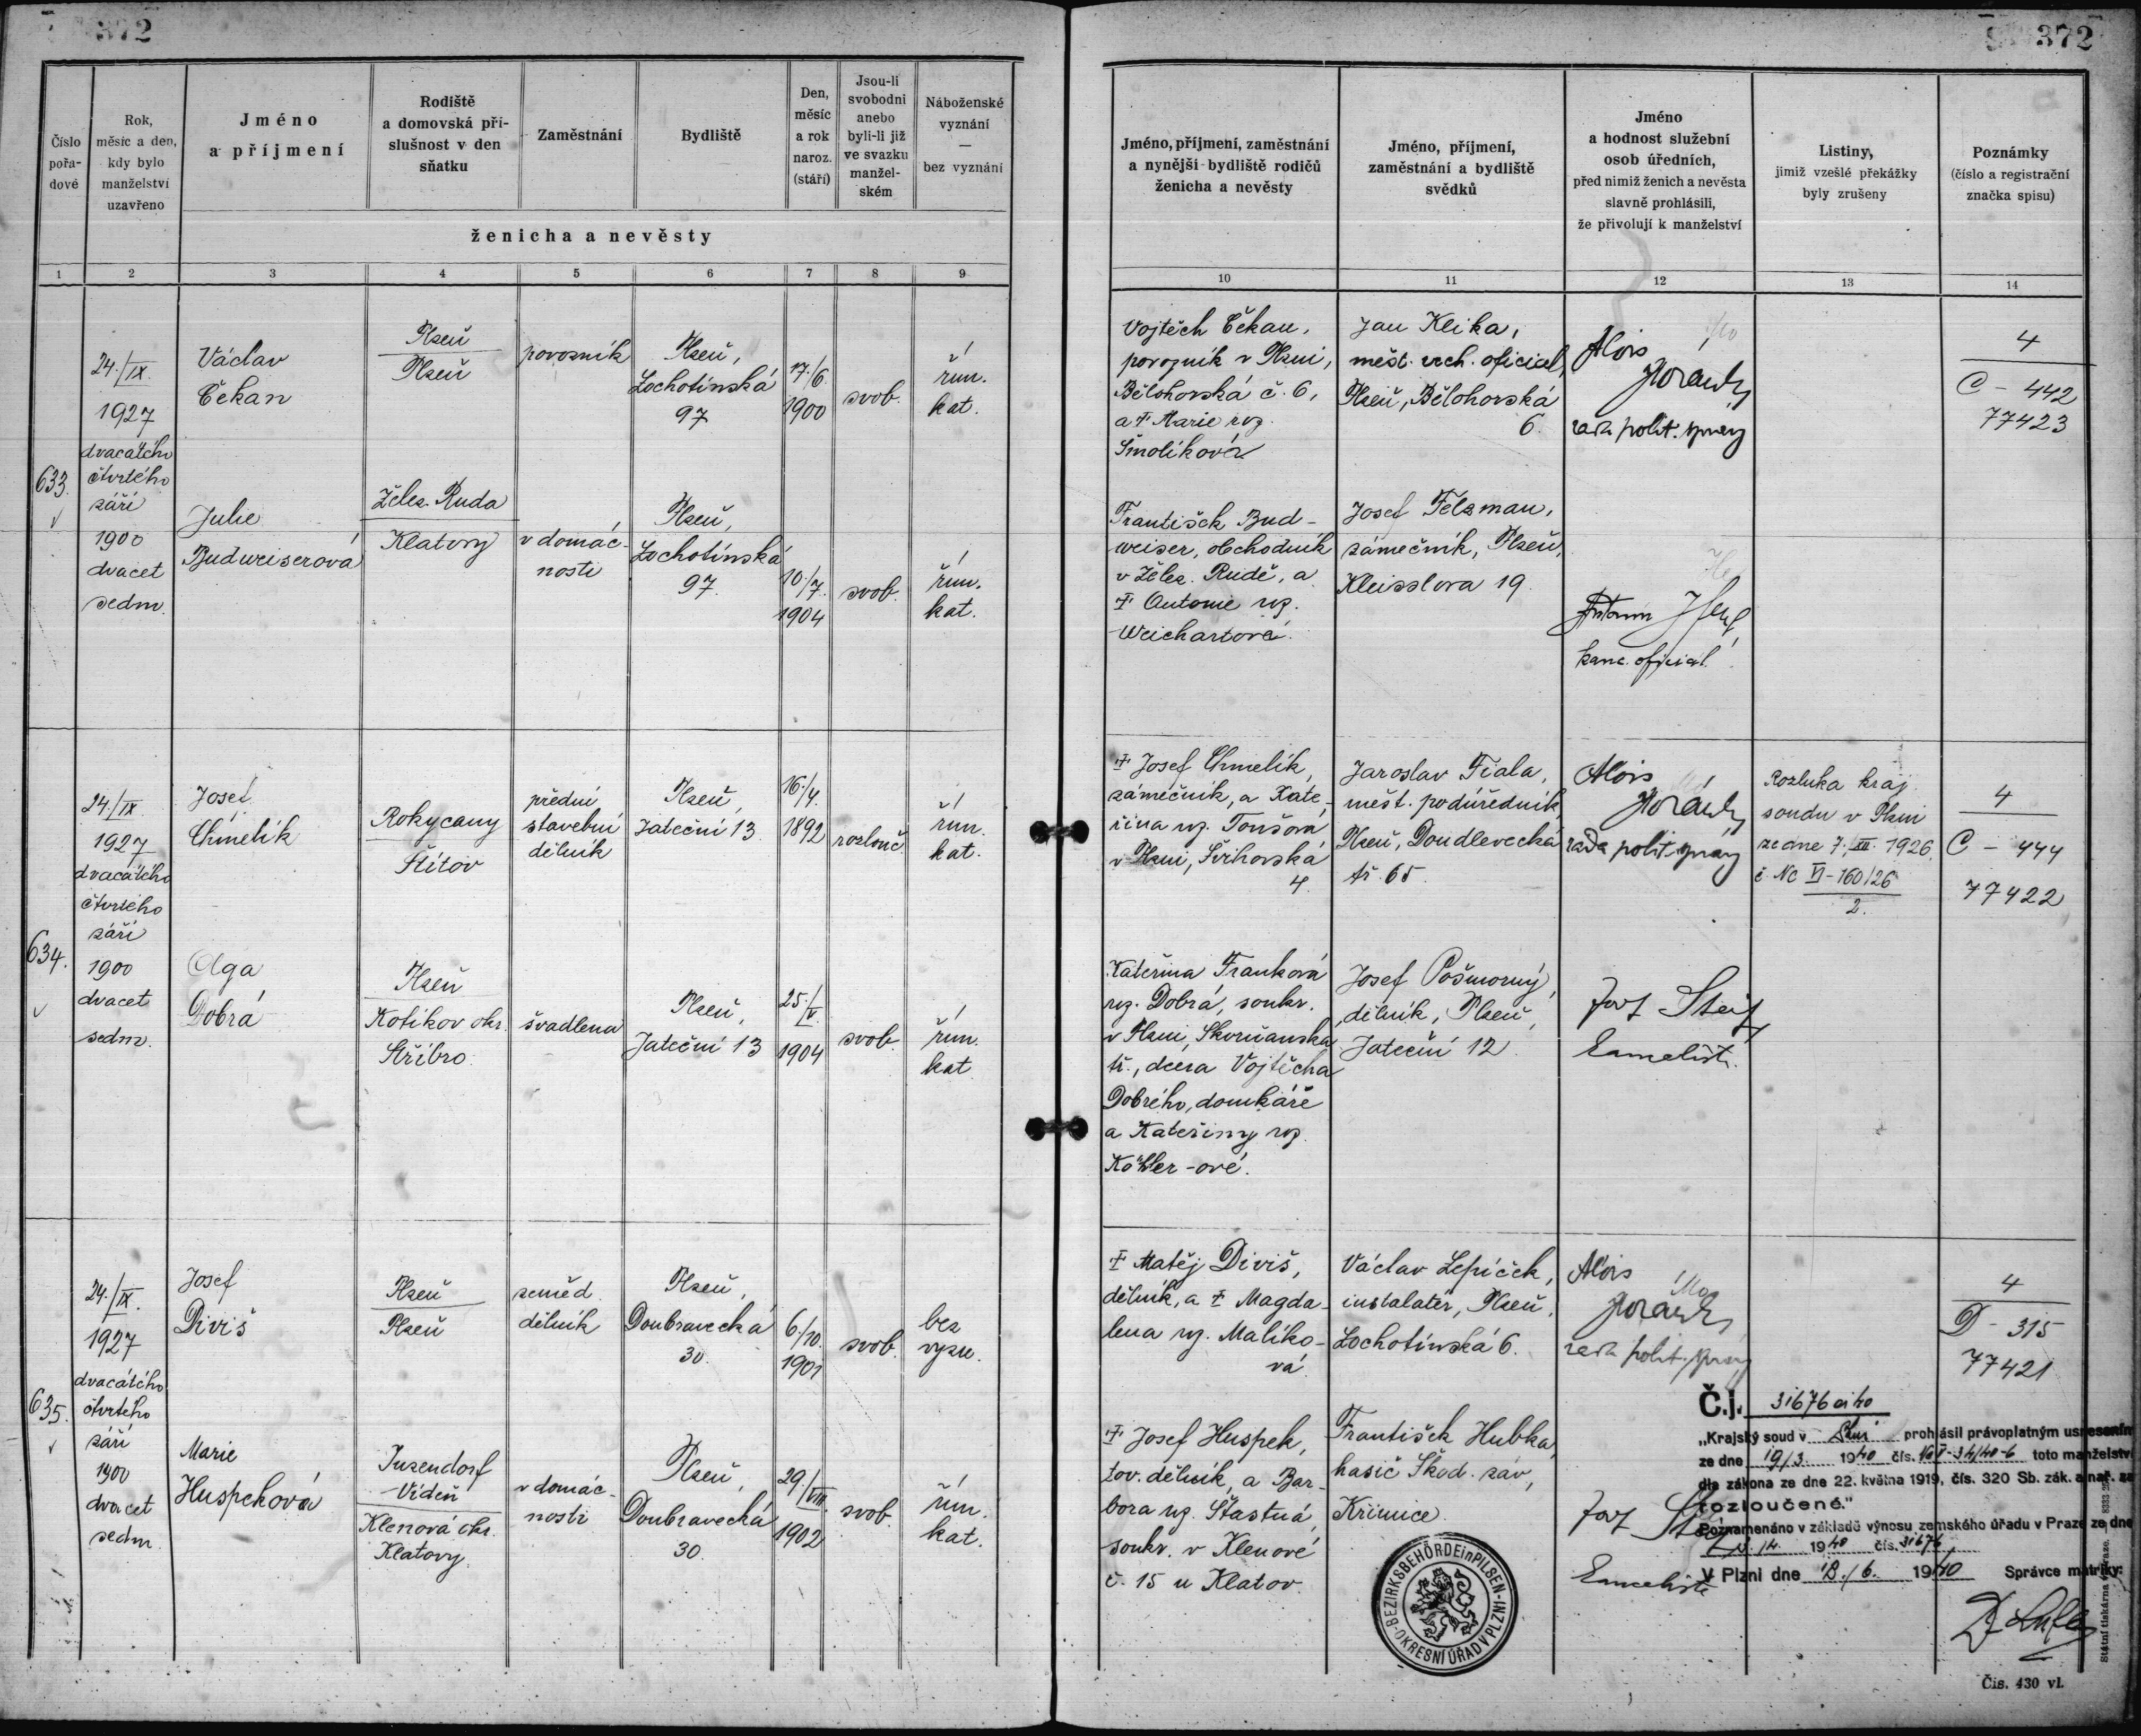 372
372
Číslo pořa-dové
Rok, měsíc a den, kdy bylo manželství uzavřeno
Jméno a příjmení
Rodiště a domovská pří-slušnost v den sňatku
Zaměstnání
Bydliště
Den, měsíc a rok naroz. (stáří)
Jsou-li svobodni anebo byli-li již ve svazku manžel-ském
Náboženské vyznání — bez vyznání
ženicha a nevěsty
Jméno, příjmení, zaměstnání a nynější bydliště rodičů ženicha a nevěsty
Jméno, příjmení, zaměstnání a bydliště svědků
Jméno a hodnost služební osob úředních, před nimiž ženich a nevěsta slavně prohlásili, že přivolují k manželství
Listiny, jimiž vzešlé překážky byly zrušeny
Poznámky (číslo a registrační značka spisu)
1 2 3 4 5 6 7 8 9 10 11 12 13 14
633.
24./IX.
1927
dvacátého
čtvrtého
září
1900
dvacet
sedm.
Václav
Čekan
Plzeň
Plzeň
povozník
Plzeň,
Lochotínská
97
17./6.
1900
svob.
řím.
kat.
Vojtěch Čekan,
povozník v Plzni,
Bělohorská č. 6,
a † Marie roz.
Smolíková
Jan Klika,
měst. vrch. oficial,
Plzeň, Bělohorská
6.
Alois
Horák
rada polit. správy
4
C - 442
77423
Julie
Budweiserová
Želez. Ruda
Klatovy
v domác-
nosti
Plzeň,
Lochotínská
97.
10./7.
1904
svob.
řím.
kat.
František Bud-
weiser, obchodník
v Želez. Rudě, a
† Antonie roz.
Weichartová.
Josef Felzman,
zámečník, Plzeň,
Kleisslova 19.
kanc. oficiál.
634.
24./IX
1927
dvacátého
čtvrtého
září
1900
dvacet
sedm.
Josef
Chmelík
Rokycany
Štítov
přední
stavební
dělník
Plzeň,
Jateční 13.
16./4.
1892
rozlouč.
řím.
kat.
† Josef Chmelík,
zámečník, a Kate-
řina roz. Toušová
v Plzni, Švihovská
4.
Jaroslav Fiala,
měst. podúředník,
Plzeň, Doudlevecká
tř. 65.
Alois
Horák
rada polit. správy
Rozluka kraj.
soudu v Plzni
ze dne 7./XII. 1926
č. Nc VI-160/26
2.
4
C - 444
77422
Olga
Dobrá
Plzeň
Kotíkov okr.
Stříbro.
švadlena
Plzeň,
Jateční 13
25./V.
1904
svob.
řím.
kat
Kateřina Franková
roz. Dobrá, soukr.
v Plzni, Skvrňanská
tř., dcera Vojtěcha
Dobrého, domkáře
a Kateřiny roz.
Köhler-ové.
Josef Pošmorný,
dělník, Plzeň,
Jateční 12.
kancelist.
635.
24./IX.
1927
dvacátého
čtvrtého
září
1900
dvacet
sedm
Josef
Diviš
Plzeň
Plzeň
zeměd.
dělník
Plzeň,
Doubravecká
30.
6./10.
1901
svob.
bez
vyzn.
† Matěj Diviš,
dělník, a † Magda-
lena roz. Maliko-
vá
Václav Lepíček,
instalatér, Plzeň,
Lochotínská 6.
Alois
Horák
rada polit. správy
4
D - 315
77421
Marie
Huspeková
Inzendorf
Vídeň
Klenová okr.
Klatovy
v domác-
nosti
Plzeň,
Doubravecká
30.
29./VIII.
1902
svob.
řím.
kat.
† Josef Huspek,
tov. dělník, a Bar-
bora roz. Šťastná,
soukr. v Klenové
č. 15 u Klatov.
František Hubka,
hasič Škod. záv,
Křimice.
kancelista
Č.j. 31676 ai 40
„Krajský soud v Plzni prohlásil právoplatným usnesením
ze dne 19/3. 1940 toto manželství
dle zákona ze dne 22. května 1919, čís. 320 Sb. zák. a nař. za
rozloučené."
Poznamenáno v základě výnosu zemského úřadu v Praze ze dne
1940 čís. 31676
V Plzni dne 18./6. 1940 Správce matriky:
BEZIRKSBEHÖRDE in PILSEN - OKRESNÍ ÚŘAD V PLZNI
Čís. 430 vl.